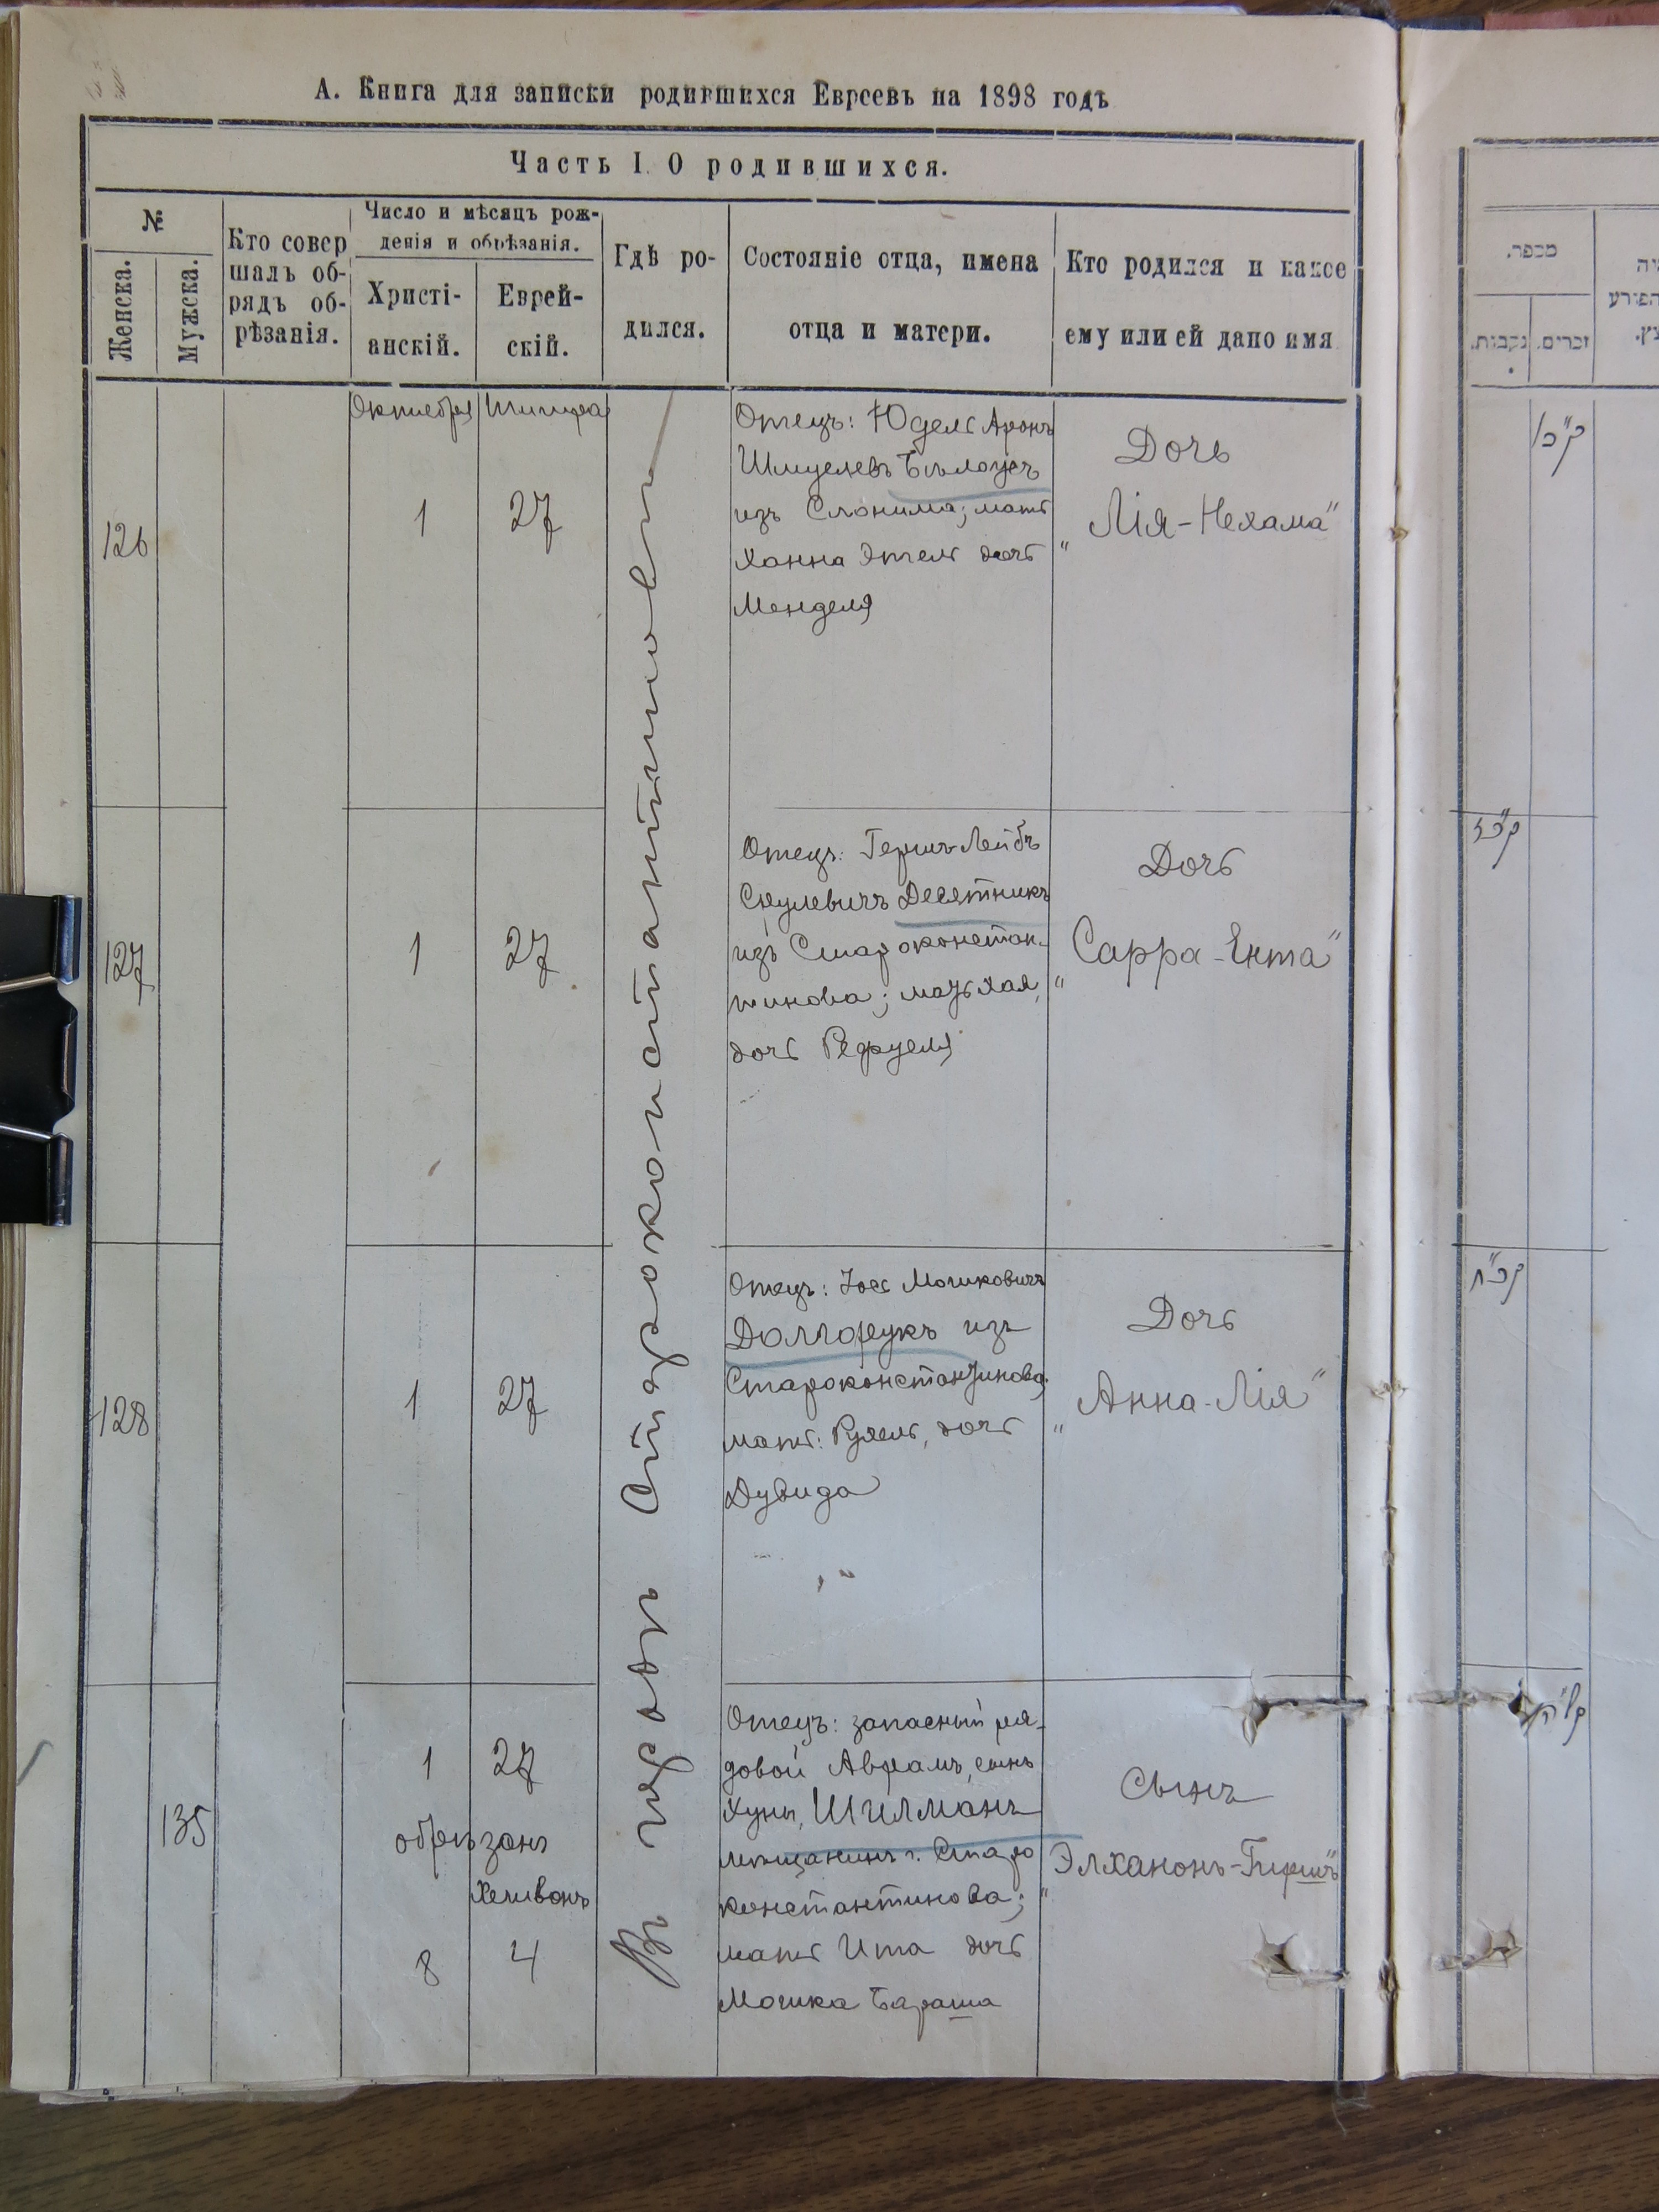 А. Книга для записки родившихся Евреевъ на 1898 годъ
Часть I. О родившихся.
№
Женска.
Мужска.
Кто совер
шалъ об-
рядъ об-
рѣзанія.
Число и мѣсяцъ рож-
денія и обрѣзанія.
Христі-
анскій.
Еврей-
скій.
Гдѣ ро-
дился.
Состояніе отца, имена
отца и матери.
Кто родился и какое
ему или ей дано имя
Октября
Тишра
Въ городѣ Староконстантиновѣ
126
1
27
Отецъ: Юдель Аронъ
Шмулевъ Бѣлоусъ
изъ Слонима; мать
Ханна Этель дочь
Менделя
Дочь
"Лія-Нехама"
127
1
27
Отецъ: Гершъ-Лейбъ
Сруlевичъ Десятникъ
изъ Староконстан-
тинова; мать Хая,
дочь Рефуеля
Дочь
"Сарра-Ента"
128
1
27
Отецъ: Іось Мошковичъ
Долгорукъ изъ
Староконстантинова;
мать: Рухель, дочь
Дувида
Дочь
"Анна-Лія"
135
1
27
обрѣзанъ
Хешвонъ
8
4
Отецъ: запасный ря-
довой Аврамъ, сынъ
Хуны, Шилманъ
мѣщанинъ г. Старо
константинова;
мать Ита дочь
Мошка Бараша
Сынъ
"Элханонъ-Гершъ"
מספר.
נקבות.
זכרים.
קכ"ו
קכ"ז
קכ"ח
קל"ה